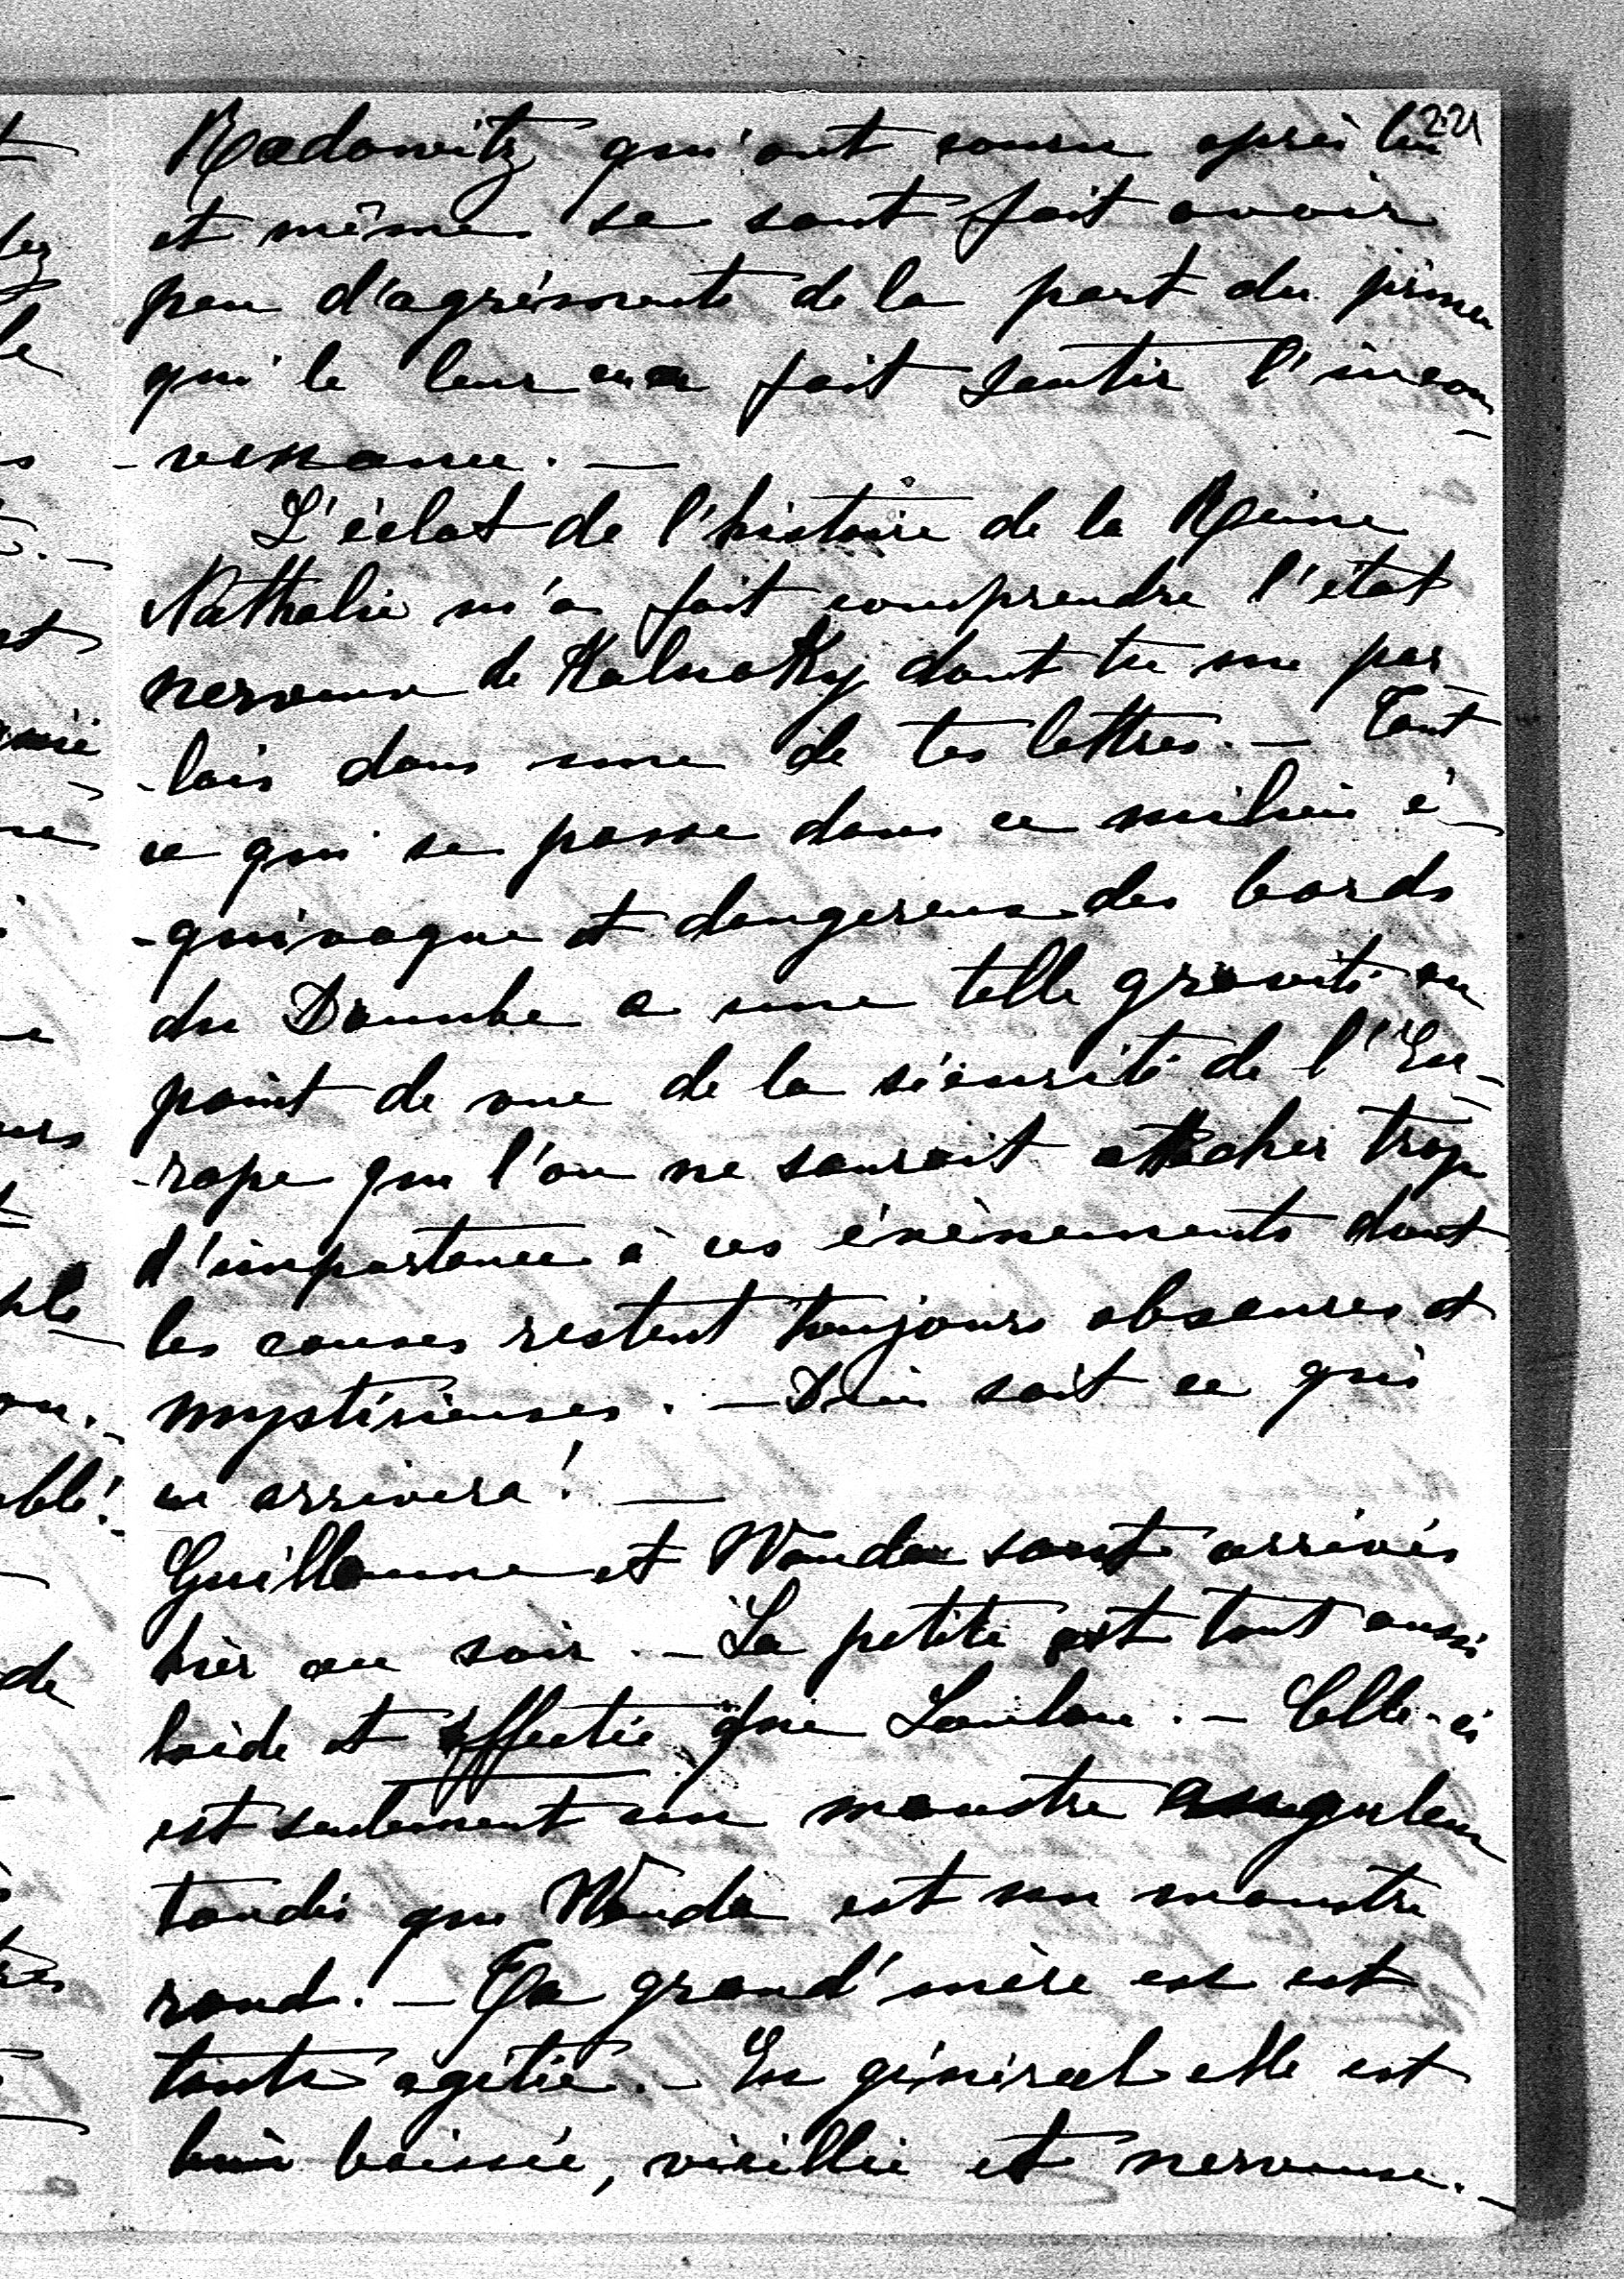 221
Radowitz qui ont couru après lui
et même se sont fait avoir
peu d'agréments de la part du prince
qui le leur en a fait sentir l'incon-
-venance. —
L'éclat de l'histoire de la Reine
Nathalie m'a fait comprendre l'état
nerveux de Kalnoky dont tu me par
-lais dans une de tes lettres. — Tout
ce qui se passe dans ce milieu é-
-quivoque et dangereux des bords
du Danube a une telle gravité au
point de vue de la sécurité de l'Eu-
-rope que l'on ne saurait attacher trop
d'importance à ces évènements dont
les causes restent toujours obscures et
mystérieuses. — Dieu sait ce qui
en arrivera! —
Guillaume et Wanda sont arrivés
hier au soir. — La petite est tout aussi
laide et affectée que Loulou. — Celle-ci
est seulement un monstre anguleux
tandis que Wanda est un monstre
rond. — Ta grand'mère en est
toute agitée. — En général elle est
bien baissée, vieillie et nerveuse. —